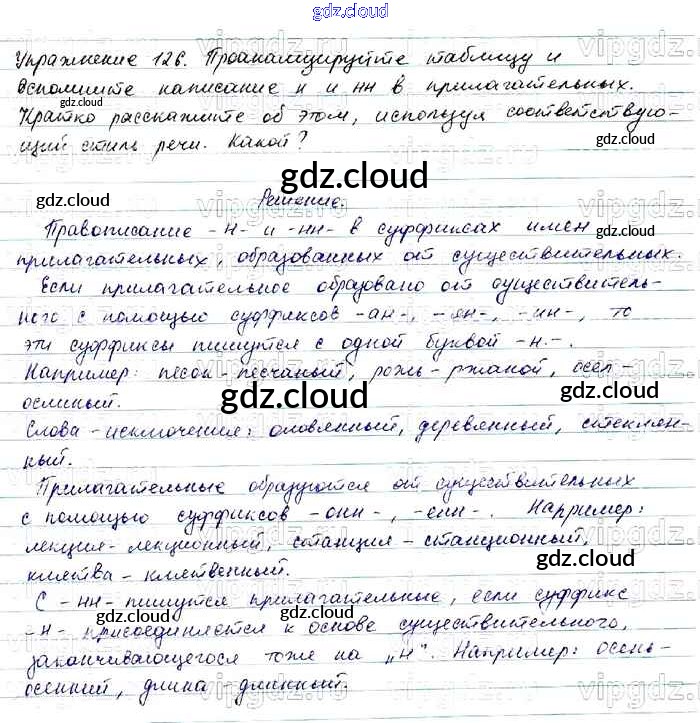 gdz.cloud
Упражнение 126. Проанализируйте таблицу и
вспомните написание н и нн в прилагательных.
Кратко расскажите об этом, используя соответствую-
щий стиль речи. Какой?
Решение.
Правописание -н- и -нн- в суффиксах имен
прилагательных, образованных от существительных.
Если прилагательное образовано от существитель-
ного с помощью суффиксов -ан-, -ян-, -ин-, то
эти суффиксы пишутся с одной буквой -н-.
Например: песок - песчаный, рожь - ржаной, осел -
ослиный.
Слова - исключения: оловянный, деревянный, стеклян-
ный.
Прилагательные образуются от существительных
с помощью суффиксов -онн-, -енн-. Например:
лекция - лекционный, станция - станционный,
клятва - клятвенный.
С -нн- пишутся прилагательные, если суффикс
-н- присоединяется к основе существительного,
заканчивающегося тоже на „н". Например: осень-
осенний, длина - длинный.